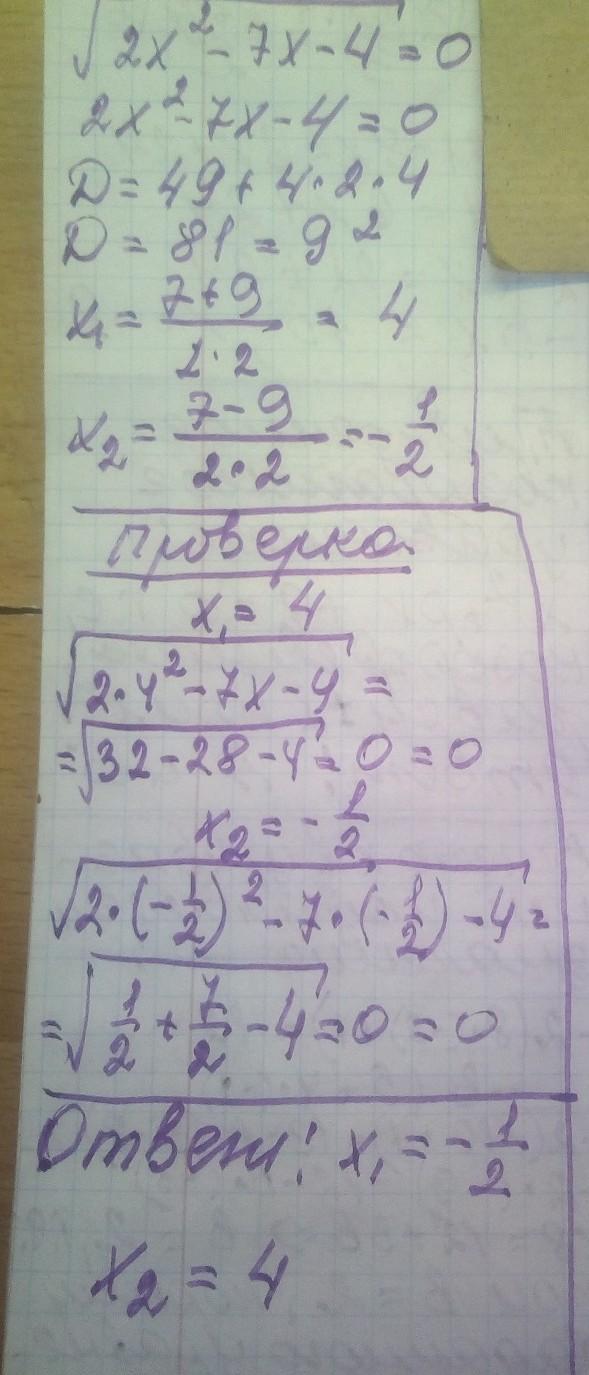 √(2x² - 7x - 4) = 0
2x² - 7x - 4 = 0
D = 49 + 4·2·4
D = 81 = 9²
x₁ = (7+9)/(2·2) = 4
x₂ = (7-9)/(2·2) = -1/2
Проверка
x₁ = 4
√(2·4² - 7x - 4) =
= √(32 - 28 - 4) = 0 = 0
x₂ = -1/2
√(2·(-1/2)² - 7·(-1/2) - 4) =
= √(1/2 + 7/2 - 4) = 0 = 0
Ответ: x₁ = -1/2
x₂ = 4